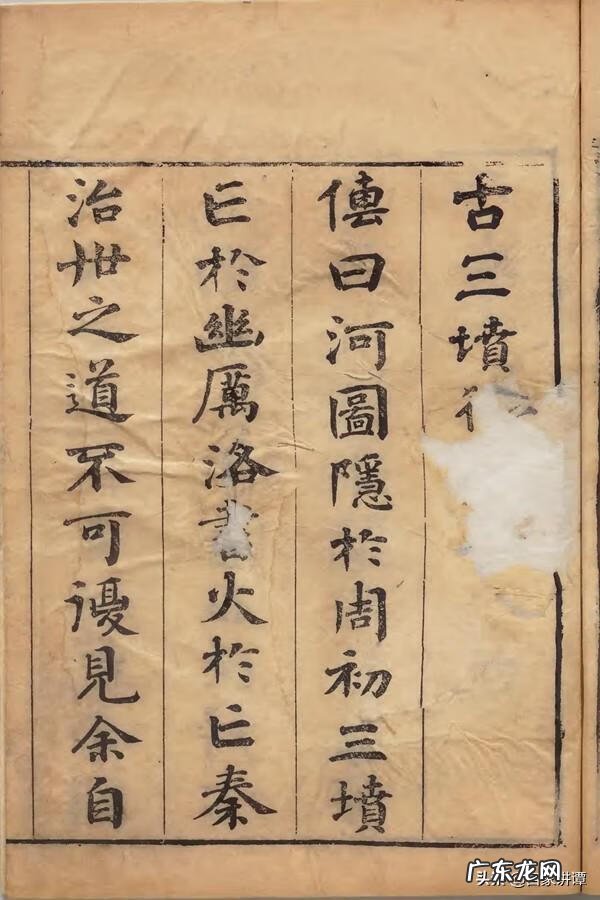 古三墳
傳曰河圖隱於周初三墳
亡於幽厲洛書火於亡秦
治世之道不可復見余自
广东龙网